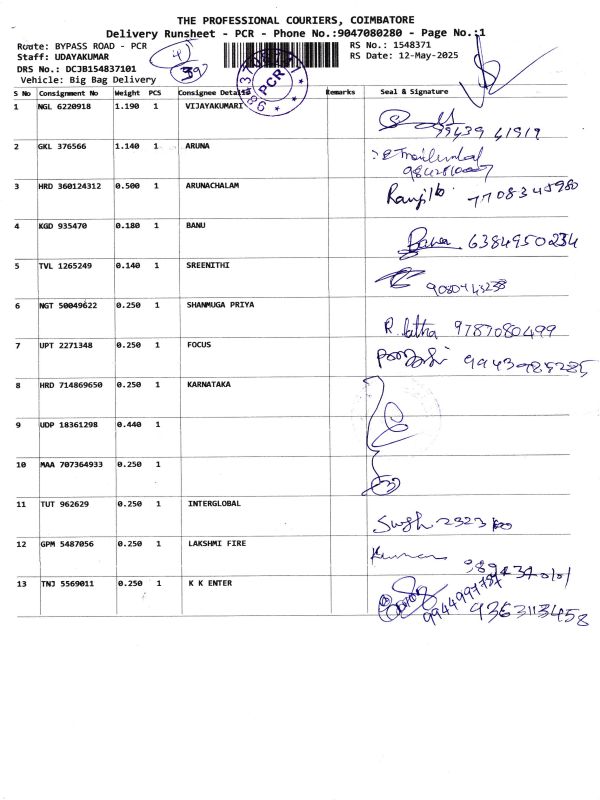 THE PROFESSIONAL COURIERS, COIMBATORE
Delivery Runsheet - PCR - Phone No.:9047080280 - Page No.:1
Route: BYPASS ROAD - PCR RS No.: 1548371
Staff: UDAYAKUMAR RS Date: 12-May-2025
DRS No.: DCJB154837101
Vehicle: Big Bag Delivery
PCR
S No Consignment No Weight PCS Consignee Details Remarks Seal & Signature
1 NGL 6220918 1.190 1 VIJAYAKUMARI
99439 41919
2 GKL 376566 1.140 1 ARUNA
3 HRD 360124312 0.500 1 ARUNACHALAM
7708345980
4 KGD 935470 0.180 1 BANU
6384950234
5 TVL 1265249 0.140 1 SREENITHI
9080743238
6 NGT 50049622 0.250 1 SHANMUGA PRIYA
R. latha 9787080499
7 UPT 2271348 0.250 1 FOCUS
8 HRD 714869650 0.250 1 KARNATAKA
9 UDP 18361298 0.440 1
10 MAA 707364933 0.250 1
11 TUT 962629 0.250 1 INTERGLOBAL
12 GPM 5487056 0.250 1 LAKSHMI FIRE
Kumar
13 TNJ 5569011 0.250 1 K K ENTER
9363113458